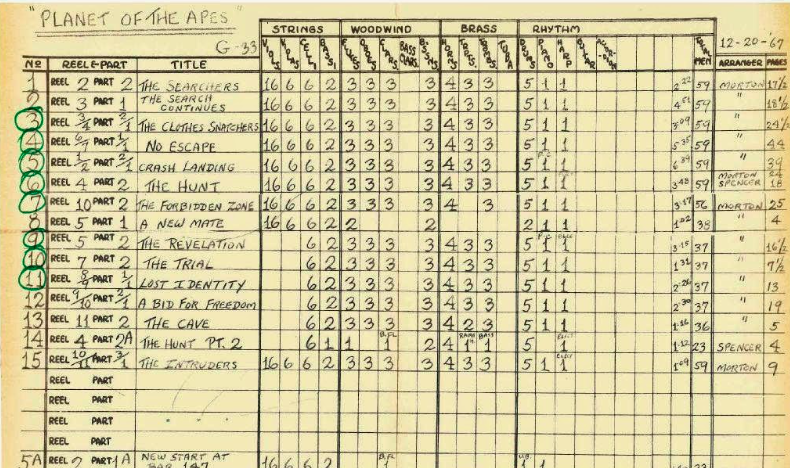 "PLANET OF THE APES"
G-33
STRINGS WOODWIND BRASS RHYTHM
12-20-67
No REEL & PART TITLE VIOLS VIOLAS CELLI BASSI FLUTES OBOES CLARS BASS CLARS. BSSNS HORNS DRUMS PIANO HARP GUITAR TOTAL MEN ARRANGER PAGES
1 REEL 2 PART 2 THE SEARCHERS 16 6 6 2 3 3 3 3 4 3 3 5 1 1 2:22 59 MORTON 17 1/2
2 REEL 3 PART 1 THE SEARCH CONTINUES 16 6 6 2 3 3 3 3 4 3 3 5 1 1 4:51 59 " 18 1/2
3 REEL 3/4 PART 2/1 THE CLOTHES SNATCHERS 16 6 6 2 3 3 3 3 4 3 3 5 1 1 3:09 59 " 24 1/2
4 REEL 6/7 PART 1/1 NO ESCAPE 16 6 6 2 3 3 3 3 4 3 3 5 1 1 5:35 59 " 44
5 REEL 1/2 PART 2/1 CRASH LANDING 16 6 6 2 3 3 3 3 4 3 3 5 1 1 6:39 59 " 39
6 REEL 4 PART 2 THE HUNT 16 6 6 2 3 3 3 3 4 3 3 5 1 1 3:48 59 MORTON 24 SPENCER 18
7 REEL 10 PART 2 THE FORBIDDEN ZONE 16 6 6 2 3 3 3 3 4 3 5 1 1 3:17 56 MORTON 25
8 REEL 5 PART 1 A NEW MATE 16 6 6 2 2 2 2 1 1 1:02 38 " 4
9 REEL 5 PART 2 THE REVELATION 6 2 3 3 3 3 4 3 3 5 1 1 3:15 37 " 16 1/2
10 REEL 7 PART 2 THE TRIAL 6 2 3 3 3 3 4 3 3 5 1 1 1:31 37 " 7 1/2
11 REEL 8/9 PART 1/1 LOST IDENTITY 6 2 3 3 3 3 4 3 3 5 1 1 2:26 37 " 13
12 REEL 9/10 PART 2/1 A BID FOR FREEDOM 6 2 3 3 3 3 4 3 3 5 1 1 2:30 37 " 19
13 REEL 11 PART 2 THE CAVE 6 2 3 3 3 3 4 2 3 5 1 1 1:16 36 " 5
14 REEL 4 PART 2A THE HUNT PT. 2 6 1 1 1 2 4 1 1 5 1 1:12 23 SPENCER 4
15 REEL 10/11 PART 3/1 THE INTRUDERS 16 6 6 2 3 3 3 3 4 3 3 5 1 1 1:09 59 MORTON 9
REEL PART
REEL PART
REEL PART
REEL PART
5A REEL 2 PART 1A NEW START AT BAR 147 16 6 6 2